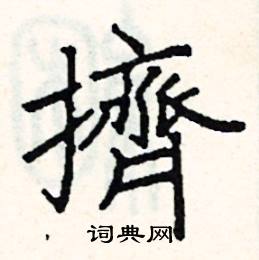 擠
词典网